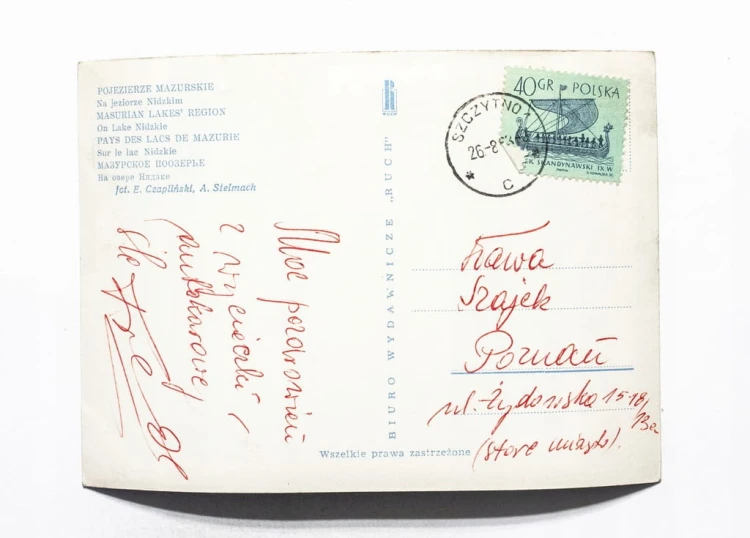 POJEZIERZE MAZURSKIE
Na jeziorze Nidzkim
MASURIAN LAKES' REGION
On Lake Nidzkie
PAYS DES LACS DE MAZURIE
Sur le lac Nidzkie
МАЗУРСКОЕ ПООЗЕРЬЕ
На озере Нидзке
fot. E. Czapliński, A. Stelmach
Moc pozdrowień
z wycieczki
śle
BIURO WYDAWNICZE „RUCH"
Wszelkie prawa zastrzeżone
40GR POLSKA
SKANDYNAWSKI IX W
SZCZYTNO 1
26-8
C
Sława
Szajek
Poznań
ul. Żydowska 15-18/
13a
(stare miasto).